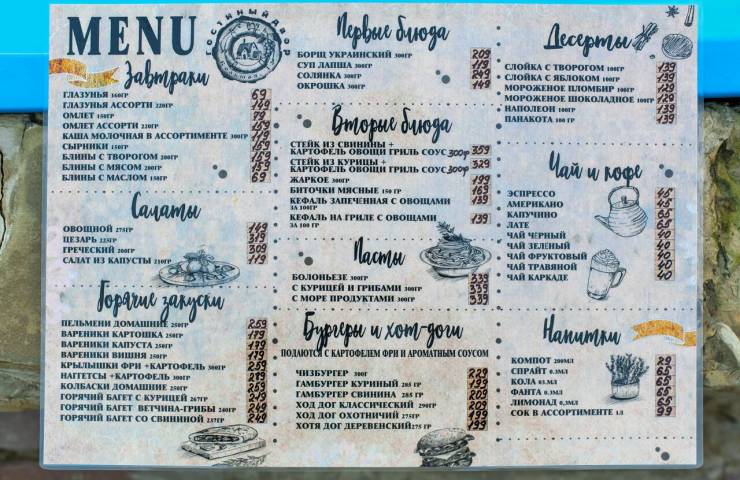 MENU
ГОСТИНЫЙ ДВОР
Завтраки
ГЛАЗУНЬЯ 160ГР 69
ГЛАЗУНЬЯ АССОРТИ 220ГР 149
ОМЛЕТ 150ГР 79
ОМЛЕТ АССОРТИ 220ГР 159
КАША МОЛОЧНАЯ В АССОРТИМЕНТЕ 300ГР
СЫРНИКИ 150ГР 159
БЛИНЫ С ТВОРОГОМ 200ГР 159
БЛИНЫ С МЯСОМ 200ГР 159
БЛИНЫ С МАСЛОМ 150ГР 69
Салаты
ОВОЩНОЙ 275ГР 149
ЦЕЗАРЬ 225ГР 319
ГРЕЧЕСКИЙ 200ГР 209
САЛАТ ИЗ КАПУСТЫ 210ГР 119
Горячие закуски
ПЕЛЬМЕНИ ДОМАШНИЕ 250ГР 259
ВАРЕНИКИ КАРТОШКА 250ГР 179
ВАРЕНИКИ КАПУСТА 250ГР 179
ВАРЕНИКИ ВИШНЯ 250ГР 179
КРЫЛЫШКИ ФРИ +КАРТОФЕЛЬ 300ГР 259
НАГГЕТСЫ +КАРТОФЕЛЬ 300ГР
КОЛБАСКИ ДОМАШНИЕ 250ГР 259
ГОРЯЧИЙ БАГЕТ С КУРИЦЕЙ 267ГР 249
ГОРЯЧИЙ БАГЕТ ВЕТЧИНА-ГРИБЫ 240ГР 249
ГОРЯЧИЙ БАГЕТ СО СВИНИНОЙ 237ГР 249
Первые блюда
БОРЩ УКРАИНСКИЙ 300ГР 209
СУП ЛАПША 300ГР 179
СОЛЯНКА 300ГР 249
ОКРОШКА 300ГР 149
Вторые блюда
СТЕЙК ИЗ СВИНИНЫ +
КАРТОФЕЛЬ ОВОЩИ ГРИЛЬ СОУС 300гр 359
СТЕЙК ИЗ КУРИЦЫ +
КАРТОФЕЛЬ ОВОЩИ ГРИЛЬ СОУС 300гр 329
ЖАРКОЕ 300ГР 199
БИТОЧКИ МЯСНЫЕ 150 ГР 169
КЕФАЛЬ ЗАПЕЧЕННАЯ С ОВОЩАМИ 139
ЗА 100ГР
КЕФАЛЬ НА ГРИЛЕ С ОВОЩАМИ 139
ЗА 100 ГР
Пасты
БОЛОНЬЕЗЕ 300ГР 339
С КУРИЦЕЙ И ГРИБАМИ 300ГР 339
С МОРЕ ПРОДУКТАМИ 300ГР 339
Бургеры и хот-доги
ПОДАЮТСЯ С КАРТОФЕЛЕМ ФРИ И АРОМАТНЫМ СОУСОМ
ЧИЗБУРГЕР 300Г 229
ГАМБУРГЕР КУРИНЫЙ 285 ГР 199
ГАМБУРГЕР СВИНИНА 285 ГР 209
ХОД ДОГ КЛАССИЧЕСКИЙ 290ГР 209
ХОД ДОГ ОХОТНИЧИЙ 275ГР 199
ХОТЯ ДОГ ДЕРЕВЕНСКИЙ 275 ГР 199
Десерты
СЛОЙКА С ТВОРОГОМ 100ГР 139
СЛОЙКА С ЯБЛОКОМ 100ГР 139
МОРОЖЕНОЕ ПЛОМБИР 100ГР 129
МОРОЖЕНОЕ ШОКОЛАДНОЕ 100ГР 129
НАПОЛЕОН 100ГР 139
ПАНАКОТА 100 ГР 139
Чай и кофе
ЭСПРЕССО 45
АМЕРИКАНО 45
КАПУЧИНО 65
ЛАТЕ 65
ЧАЙ ЧЕРНЫЙ 40
ЧАЙ ЗЕЛЕНЫЙ 40
ЧАЙ ФРУКТОВЫЙ 40
ЧАЙ ТРАВЯНОЙ 40
ЧАЙ КАРКАДЕ 40
Напитки
КОМПОТ 200МЛ 29
СПРАЙТ 0,3МЛ 65
КОЛА 03МЛ 65
ФАНТА 0.3МЛ 65
ЛИМОНАД 0,3МЛ 65
СОК В АССОРТИМЕНТЕ 1Л 99